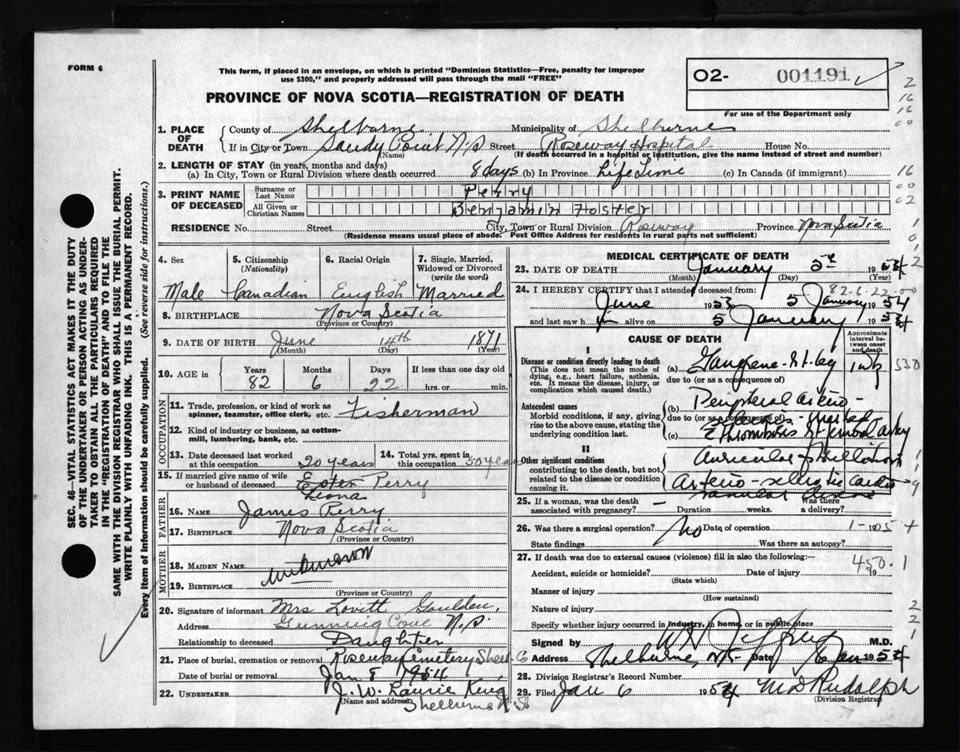 FORM 6
This form, if placed in an envelope, on which is printed "Dominion Statistics—Free, penalty for improper
use $300," and properly addressed will pass through the mail "FREE"
O2- 001191
For use of the Department only
PROVINCE OF NOVA SCOTIA—REGISTRATION OF DEATH
1. PLACE OF DEATH
County of Shelburne Municipality of Shelburne
If in City or Town Sandy Point N.S Street Roseway Hospital House No.
(Name) (If death occurred in a hospital or institution, give the name instead of street and number)
2. LENGTH OF STAY (in years, months and days)
(a) In City, Town or Rural Division where death occurred 8 days (b) In Province Life time (c) In Canada (if immigrant)
3. PRINT NAME OF DECEASED
Surname or Last Name Perry
All Given or Christian Names Benjamin Foster
RESIDENCE No. Street City, Town or Rural Division Roseway Province Nova Scotia
(Residence means usual place of abode. Post Office Address for residents in rural parts not sufficient)
SEC. 46—VITAL STATISTICS ACT MAKES IT THE DUTY
OF THE UNDERTAKER OR PERSON ACTING AS UNDER-
TAKER TO OBTAIN ALL THE PARTICULARS REQUIRED
IN THE "REGISTRATION OF DEATH" AND TO FILE THE
SAME WITH THE DIVISION REGISTRAR WHO SHALL ISSUE THE BURIAL PERMIT.
WRITE PLAINLY WITH UNFADING INK. THIS IS A PERMANENT RECORD.
Every item of information should be carefully supplied. (See reverse side for instructions.)
4. Sex
Male
5. Citizenship
(Nationality)
Canadian
6. Racial Origin
English
7. Single, Married, Widowed or Divorced
(write the word)
Married
8. BIRTHPLACE Nova Scotia
(Province or Country)
9. DATE OF BIRTH June 14th 1871
(Month) (Day) (Year)
10. AGE in Years Months Days If less than one day old
82 6 22 hrs. or min.
OCCUPATION
11. Trade, profession, or kind of work as
spinner, teamster, office clerk, etc. Fisherman
12. Kind of industry or business, as cotton-
mill, lumbering, bank, etc.
13. Date deceased last worked
at this occupation 20 years
14. Total yrs. spent in
this occupation 50 years
15. If married give name of wife
or husband of deceased Ester Perry
Leona
FATHER
16. Name James Perry
17. Birthplace Nova Scotia
(Province or Country)
MOTHER
18. Maiden Name
19. Birthplace
(Province or Country)
20. Signature of informant Mrs Lovitt Goulden
Address Gunning Cove N.S.
Relationship to deceased Daughter
21. Place of burial, cremation or removal Roseway Cemetery Shel. Co
Date of burial or removal Jan 8 1954
22. UNDERTAKER J. W. Laurie King
(Name and address) Shelburne N.S.
MEDICAL CERTIFICATE OF DEATH
23. DATE OF DEATH January 5th 1954
(Month) (Day) (Year)
82-6-22-00
24. I HEREBY CERTIFY that I attended deceased from:
June 1953 5 January 1954
and last saw h alive on 5 January 1954
CAUSE OF DEATH
Approximate interval between onset and death
I
Disease or condition directly leading to death
(This does not mean the mode of
dying, e.g., heart failure, asthenia,
etc. It means the disease, injury, or
complication which caused death.)
(a) Gangrene - rt leg 1 wk
due to (or as a consequence of)
Antecedent causes
Morbid conditions, if any, giving
rise to the above cause, stating the
underlying condition last.
(b) Peripheral arterio-
due to (or as a consequence of)
(c)
II
Other significant conditions
contributing to the death, but not
related to the disease or condition
causing it.
Auricular fibrillation
25. If a woman, was the death
associated with pregnancy? — Duration weeks. Was there a delivery?
26. Was there a surgical operation? No Date of operation 19
State findings Was there an autopsy?
27. If death was due to external causes (violence) fill in also the following:—
Accident, suicide or homicide? Date of injury 19
(State which)
450.1
Manner of injury
(How sustained)
Nature of injury
Specify whether injury occurred in industry, in home, or in public place
Signed by M.D.
Address Shelburne, NS Date 6 Jan 1954
28. Division Registrar's Record Number
29. Filed Jan 6 1954 M D Rudolph
(Division Registrar)